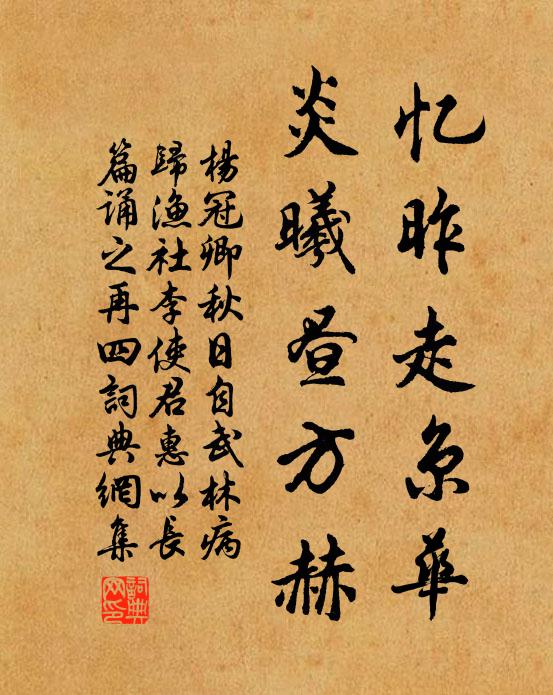 忆昨走京华
炎曦昼方赫
楊冠卿秋日自武林病
歸漁社李使君惠以長
篇诵之再四詞典網集
詞典網印